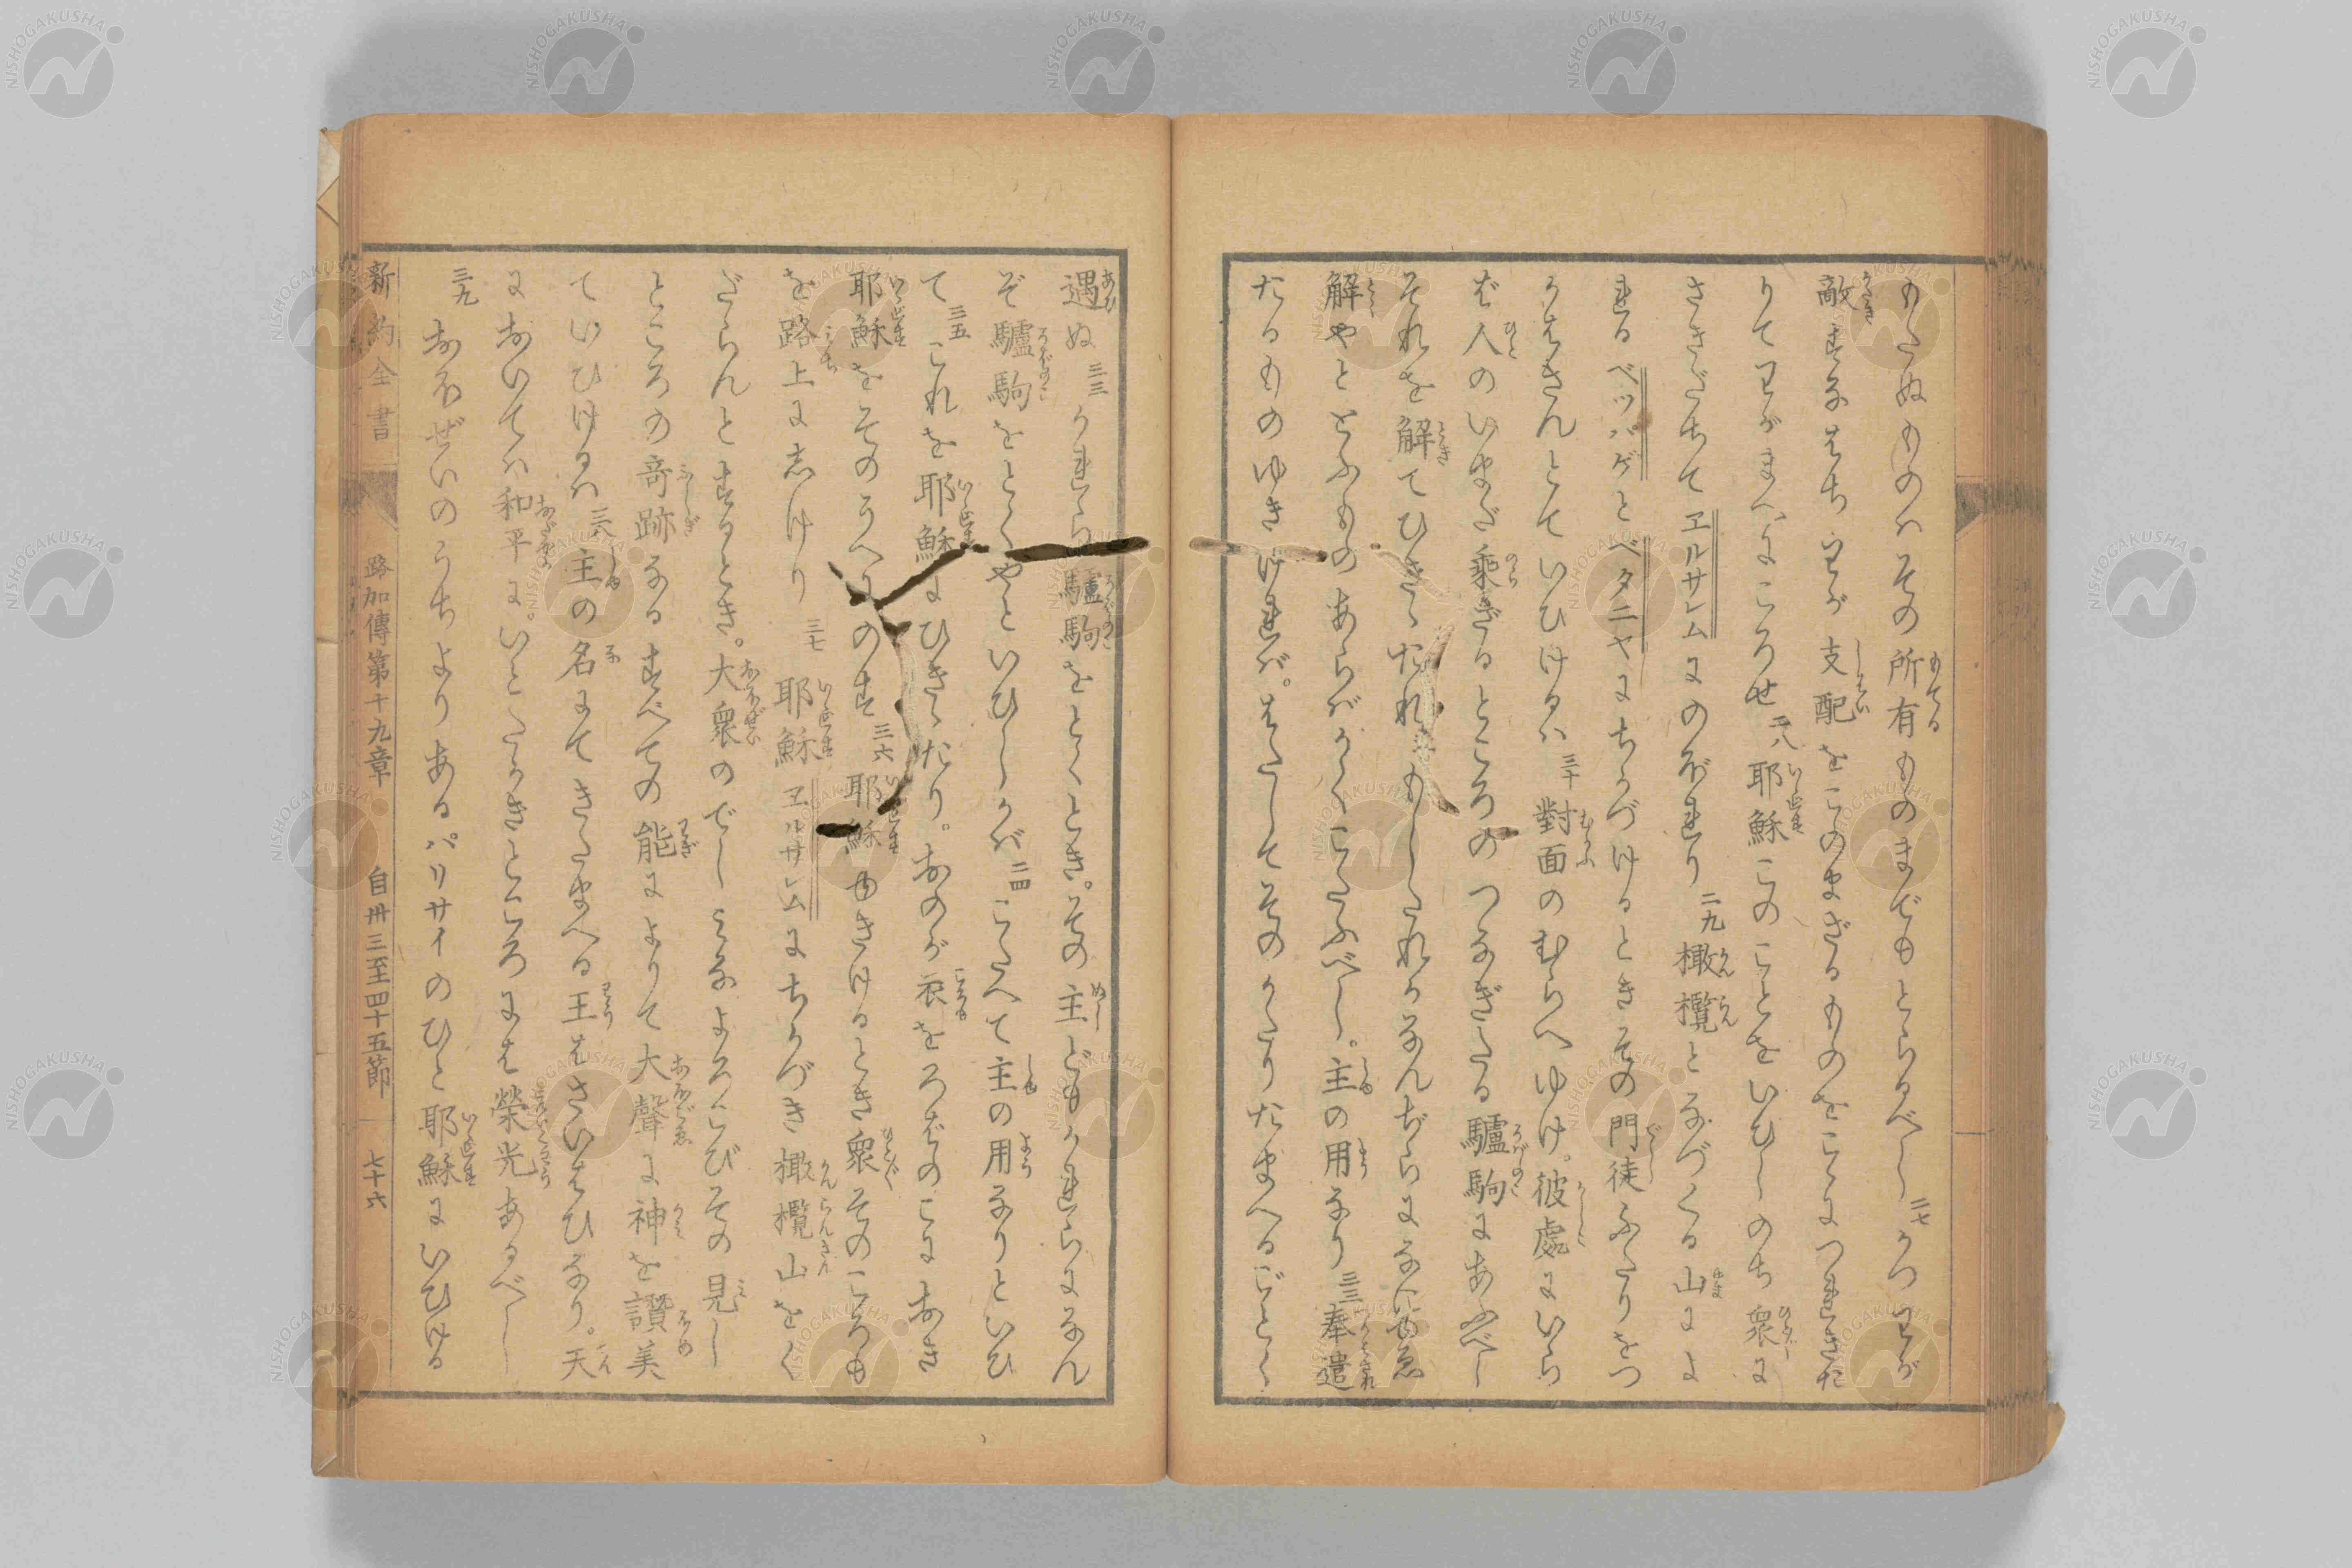 もたぬものハその所有ものまでもとらるべし 二七 かつわが
敵すなはちわが支配をこのまざるものをこゝにつれきた
りてわがまへにころせ 二八 耶穌このことをいひしのち衆に
さきだちてヱルサレムにのぼれり 二九 橄欖となづくる山によ
れるベツパゲとベタニヤにちかづけるときその門徒ふたりをつ
かはさんとていひけるハ 三十 對面のむらへゆけ。彼處にいら
ば人のいまだ乘ざるところのつなぎたる驢駒にあふべし
それを解てひきゝたれ もしたれかなんぢらになにゆゑ
解やととふものあらバかくこたふべし。主の用なり 三三 奉遣
たるものゆきければ。はたしてそのかたりたまへるごとく
遇ぬ 三三 かれら驢駒をとくとき。その主どもかれらになん
ぞ驢駒をとくやといひしかバ 三四 こたへて主の用なりといひ
て 三五 これを耶穌にひきゝたり。おのが衣をろばのこにおき
耶穌をそのうへにのす 三六 耶穌ゆきけるとき衆そのころも
を路上にしけり 三七 耶穌ヱルサレムにちかづき橄欖山をく
だらんとするとき。大衆のでしみなよろこびその見し
ところの奇跡なるすべての能によりて大聲に神を讚美
ていひけるハ 三八 主の名にてきたまへる王はさいはひなり。天
においてハ和平に。いとたかきところには榮光あるべし
三九 おほぜいのうちよりあるパリサイのひと耶穌にいひける
新約全書 路加傳第十九章 自卅三至四十五節 七十六
NISHOGAKUSHA